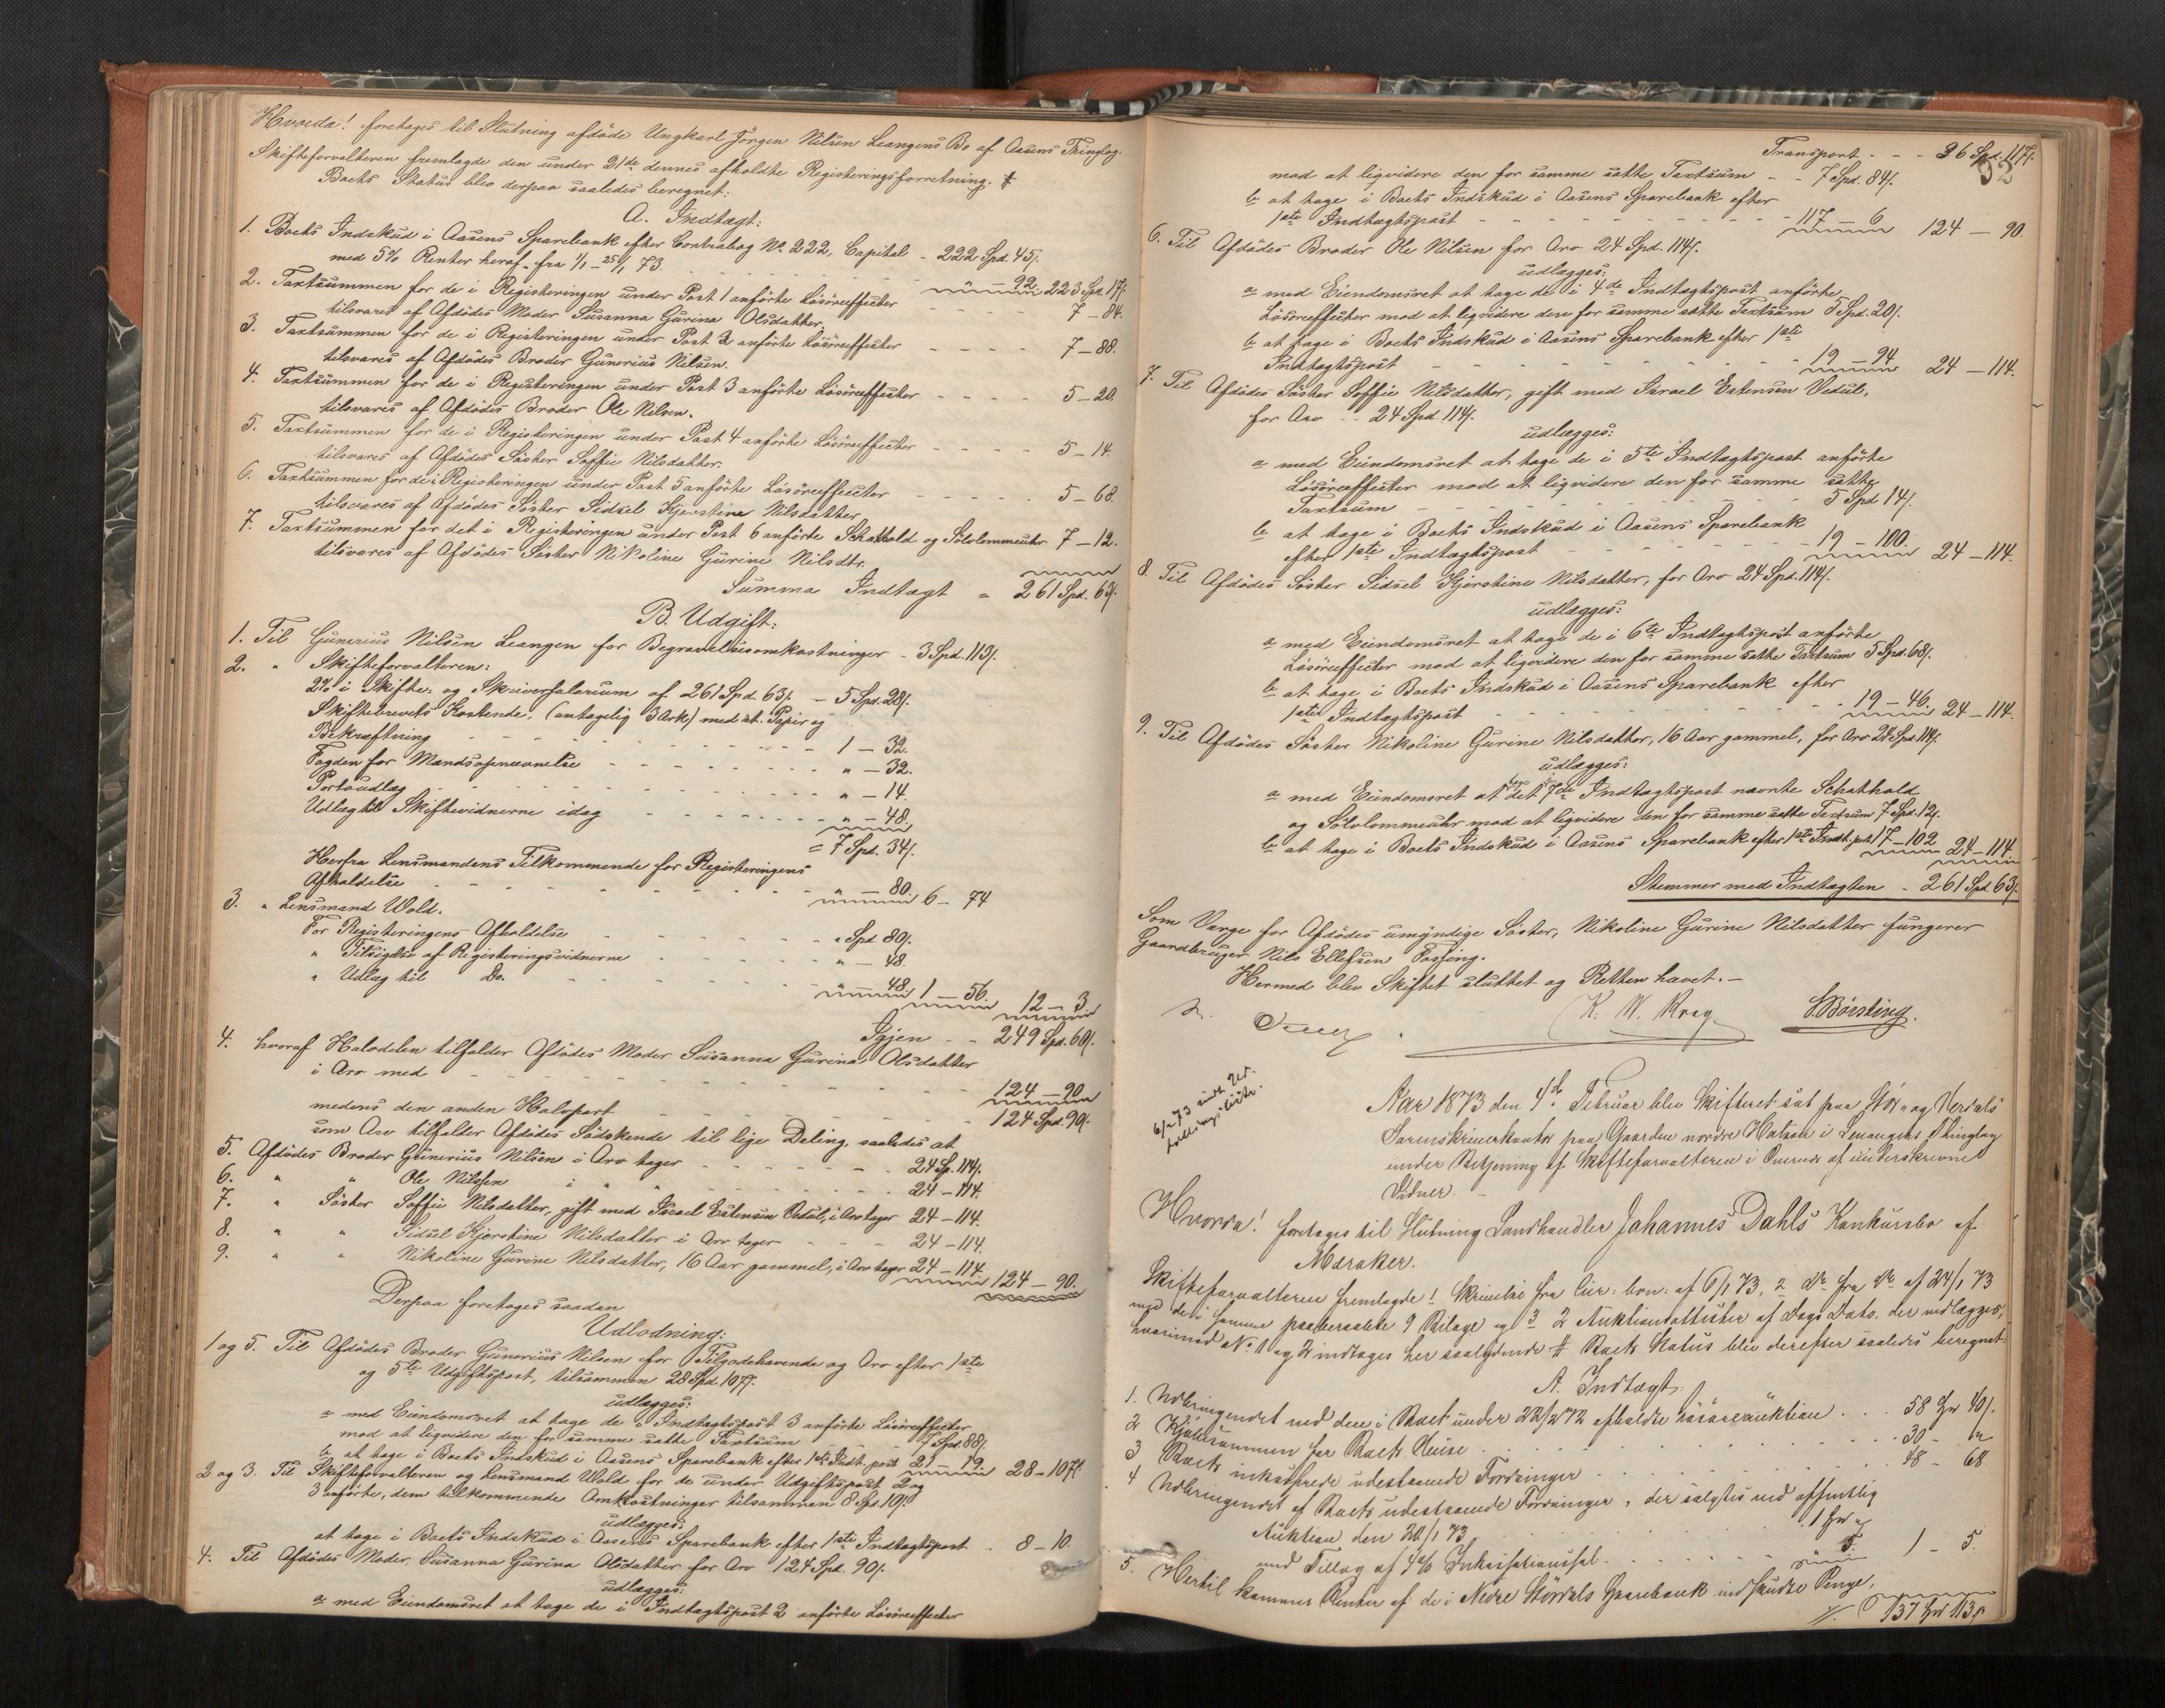 Hvorda! foretages til Slutning afdöde Ungkarl Jörgen Nilsen Leangens Bo af Aasens Thinglag.
Skifteforvalteren fremlagde den under 21de dennes afholdte Registreringsforretning. #
Boets Status blev derpaa saaledes beregnet:
A. Indtægt:
1. Boets Indskud i Aasens Sparebank efter Contrabog No 222, Capital - 222 Spd. 45/.
med 5% Renter heraf fra 1/1 - 25/1 73. - - - " - 92. 223 Spd. 17/.
2. Taxtsummen for de i Registeringen under Post 1 anførte Lösöreeffecter - - - 7 - 84.
tilsvares af Afdödes Moder Susanna Gurina Olsdatter.
3. Taxtsummen for de i Registeringen under Post 2 anførte Lösöreeffecter - - - 7 - 88.
tilsvares af Afdödes Broder Gunerius Nilsen.
4. Taxtsummen for de i Registeringen under Post 3 anførte Lösöreeffecter - - - 5 - 20.
tilsvares af Afdödes Broder Ole Nilsen.
5. Taxtsummen for de i Registeringen under Post 4 anførte Lösöreeffecter - - - 5 - 14.
tilsvares af Afdödes Söster Soffie Nilsdatter.
6. Taxtsummen for de i Registeringen under Post 5 anførte Lösöreeffecter - - - 5 - 68.
tilsvares af Afdödes Söster Sidsel Kjerstine Nilsdatter
7. Taxtsummen for det i Registeringen under Post 6 anførte Schatthold og Sölvlommeuhr 7 - 12.
tilsvares af Afdödes Söster Nikoline Gurine Nilsdtr.
Summa Indtægt - 261 Spd. 63/.
B. Udgift:
1. Til Gunerius Nilsen Leangen for Begravelsesomkostninger - 3 Spd. 113/.
2. " Skifteforvalteren:
2% i Skifte- og Skriversalarium af 261 Spd. 63/. - 5 Spd. 28/.
Skiftebrevets Kostende, (antagelig 3 Ark) med st. Papir og
Bekræftning - - - 1 - 32.
Fogden for Mandsopnævnelse - - - " - 32.
Portoudlæg - - - " - 14.
Udlæg til Skiftevidnerne idag - - - " - 48.
= 7 Spd. 34/.
Herfra Lensmandens Tilkommende for Registeringens
Afholdelse - - - " - 80. 6 - 74
3. " Lensmand Wold.
For Registeringens Afholdelse - - - " Spd 80/.
" Tilsigelse af Registeringsvidnerne - - - " - 48.
" Udlæg til Do. - - - " - 48. 1 - 56. 12 - 3
Igjen - - 249 Spd. 60/.
4. hvoraf Halvdelen tilfalder Afdödes Moder Susanna Gurina Olsdatter
i Arv med - - - 124 - 90
medens den anden Halvpart - - - 124 Spd. 90/.
som Arv tilfalder Afdödes Södskende til lige Deling, saaledes at
5. Afdödes Broder Gunerius Nilsen i Arv tager - - - 24 Sp. 114/.
6. " " Ole Nilsen i " " - - - 24 - 114.
7. " Söster Soffie Nilsdatter, gift med Israel Estensen Vedul, i Arv tager 24 - 114.
8. " " Sidsel Kjerstine Nilsdatter i Arv tager - - - 24 - 114.
9. " " Nikoline Gurine Nilsdatter, 16 Aar gammel, i Arv tager 24 - 114. 124 - 90.
Derpaa foretoges saadan
Udlodning:
1 og 5. Til Afdödes Broder Gunerius Nilsen for Tilgodehavende og Arv efter 1ste
og 5te Udgiftspost, tilsammen 28 Spd. 107/.
udlægges:
a med Eiendomsret at tage de i Indtægtspost 3 anførte Lösöreeffecter
mod at liqvidere den for samme satte Taxtsum - - 7 Spd. 88/.
b at tage i Boets Indskud i Aasens Sparebank efter 1ste Indt. post 21 - 19. 28 - 107/.
2 og 3. Til Skifteforvalteren og Lensmand Wold for de under Udgiftspost 2 og
3 anførte, dem tilkommende Omkostninger tilsammen 8 Spd 10/.
udlægges:
at tage i Boets Indskud i Aasens Sparebank efter 1ste Indtægtspost - 8 - 10.
4. Til Afdödes Moder, Susanna Gurina Olsdatter for Arv 124 Spd. 90/.
udlægges:
a med Eiendomsret at tage de i Indtægtspost 2 anførte Lösöreeffecter
Transport - - - 36 Spd. 117/.
92
mod at liqvidere den for samme satte Taxtsum - - 7 Spd. 84/.
b at tage i Boets Indskud i Aasens Sparebank efter
1ste Indtægtspost - - - 117 - 6 124 - 90
6. Til Afdödes Broder Ole Nilsen for Arv 24 Spd. 114/.
udlægges:
a med Eiendomsret at tage de i 4de Indtægtspost anførte
Lösöreeffecter mod at liqvidere den for samme satte Taxtsum 5 Spd. 20/.
b at tage i Boets Indskud i Aasens Sparebank efter 1ste
Indtægtspost - - - 19 - 94 24 - 114.
7. Til Afdödes Söster Soffie Nilsdatter, gift med Israel Estensen Vedul,
for Arv - - 24 Spd. 114/.
udlægges:
a med Eiendomsret at tage de i 5te Indtægtspost anførte
Lösöreeffecter mod at liqvidere den for samme satte
Taxtsum - - - 5 Spd 14/.
b at tage i Boets Indskud i Aasens Sparebank
efter 1ste Indtægtspost - - - 19 - 100. 24 - 114.
8. Til Afdödes Söster Sidsel Kjerstine Nilsdatter, for Arv 24 Spd. 114/.
udlægges:
a med Eiendomsret at tage de i 6te Indtægtspost anførte
Lösöreeffecter mod at liqvidere den for samme satte Taxtsum 5 Spd. 68/.
b at tage i Boets Indskud i Aasens Sparebank efter
1ste Indtægtspost - - - 19 - 46. 24 - 114.
9. Til Afdödes Söster Nikoline Gurine Nilsdatter, 16 Aar gammel, for Arv 24 Spd. 114/.
udlægges:
a med Eiendomsret at tage det i 7de Indtægtspost nævnte Schathold
og Sölvlommeuhr mod at liqvidere den for samme satte Taxtsum 7 Spd. 12/.
b at tage i Boets Indskud i Aasens Sparebank efter 1ste Indt. post 17 - 102 24 - 114
Stemmer med Indtægten - 261 Spd 63/.
Som Værge for Afdödes umyndige Söster, Nikoline Gurine Nilsdatter fungerer
Gaardbruger Nils Ellefsen Fossing.
Hermed blev Skiftet sluttet og Retten hævet. -
K. M. Krag S. Börsting.
Aar 1873 den 4de Februar blev Skifteret sat paa Stör- og Værdals
Sorenskriverkontor paa Gaarden nordre Halsan i Levangens Thinglag
under Betjening af Skifteforvalteren i Overvær af underskrevne
Vidner. -
Hvorda! foretages til Slutning Landhandler Johannes Dahls Konkursbo af
Meraker.
Skifteforvalteren fremlagde 1 Skrivelse fra af 6/1 73, 2 do fra do af 24/1 73
med de i samme paaberaabte 9 Bilage og 3 2 Auktionsattester af Dags Dato. der vedlægges,
hvorimod No 1 og 2 indtages her saalydende # Boets Status blev derefter saaledes beregnet:
A. Indtægt:
1. Udbringendet ved den i Boet under 22/2 72 afholdte Lösöreauktion . . . 58 Spd 40/.
2 Kjöbesummen for Boets Huse . . . 30 - "
3 Boets inkasserede udestaaende Fordringer . . . 48 - 68
4 Udbringendet af Boets udestaaende Fordringer, der solgtes ved offentlig
Auktion den 20/1 73 . . . 1 Spd "
med Tillæg af 4% Inkassationssal. . . . 5. 1 - 5.
5. Hertil kommer Renter af de i Nedre Stördals Sparebank indskudte Penge,
137 Spd 113/.